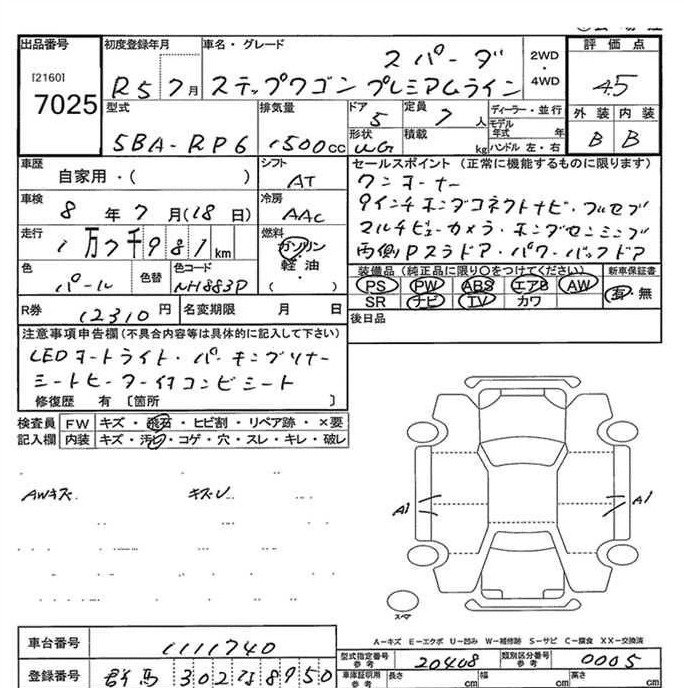 出品番号 初度登録年月 車名・グレード スパーダ 2WD ・ 4WD 評価点
[2160]
7025
R5 7月 ステップワゴン プレミアムライン 4.5
型式 排気量 ドア 定員 ディーラー・並行 外装 内装
5BA-RP6 1500cc 5 7人 モデル年式 年 B B
形状 WG 積載 kg ハンドル 左・右
車歴 シフト セールスポイント(正常に機能するものに限ります)
自家用・( ) AT ワンオーナー
車検 冷房 9インチホンダコネクトナビ・フルセグ
8年7月(18日) AAC マルチビューカメラ・ホンダセンシング
走行 燃料 両側Pスラドア・パワーバックドア
1万7千981km ガソリン
軽・油
( )
色 色替 色コード 装備品(純正品に限り○をつけてください) 新車保証書
パール NH883P PS PW ABS エアB AW 有・無
SR ナビ TV カワ
R券 12310円 名変期限 月 日 後日品
注意事項申告欄(不具合内容等は具体的に記入して下さい)
LEDオートライト・パーキングソナー
シートヒーター付コンビシート
修復歴 有〔箇所 〕
検査員 FW キズ・飛石・ヒビ割・リペア跡・×要
記入欄 内装 キズ・汚レ・コゲ・穴・スレ・キレ・破レ
AWキズ. キズU
A1 A1
スペア
A-キズ E-エクボ U-凹み W-補修跡 S-サビ C-腐食 XX-交換済
車台番号 1111740
型式指定番号 参考 20408 類別区分番号 参考 0005
登録番号 群馬 302 す 8950
車庫証明用 参考 長さ cm 幅 cm 高さ cm